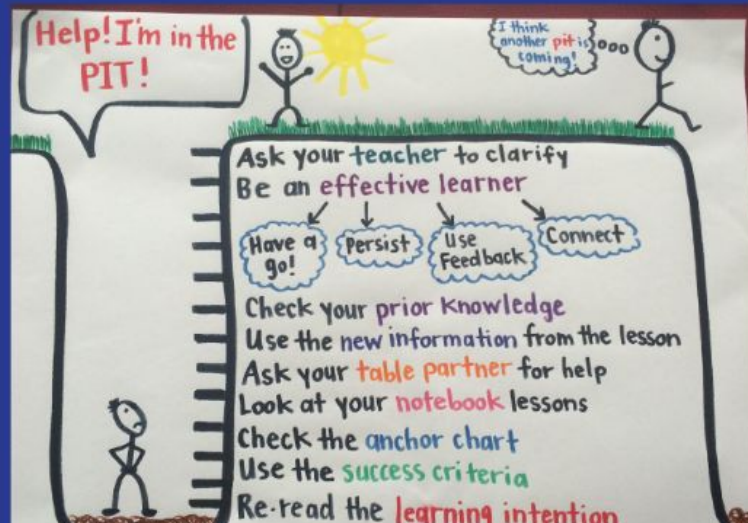 Help! I'm in the
PIT!
I think
another pit is
coming!
Ask your teacher to clarify
Be an effective learner
Have a
go!
Persist
Use
Feedback
Connect
Check your prior knowledge
Use the new information from the lesson
Ask your table partner for help
Look at your notebook lessons
Check the anchor chart
Use the success criteria
Re-read the learning intention